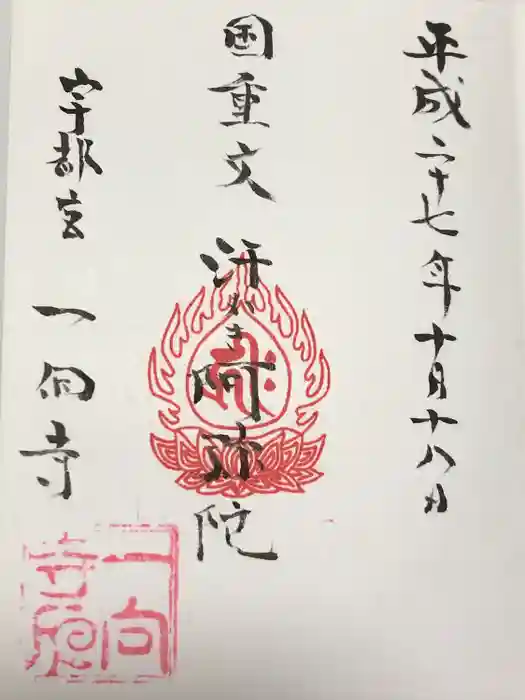 平成二十七年十月十八日
国重文 汗かき阿弥陀
宇都宮 一向寺
一向寺